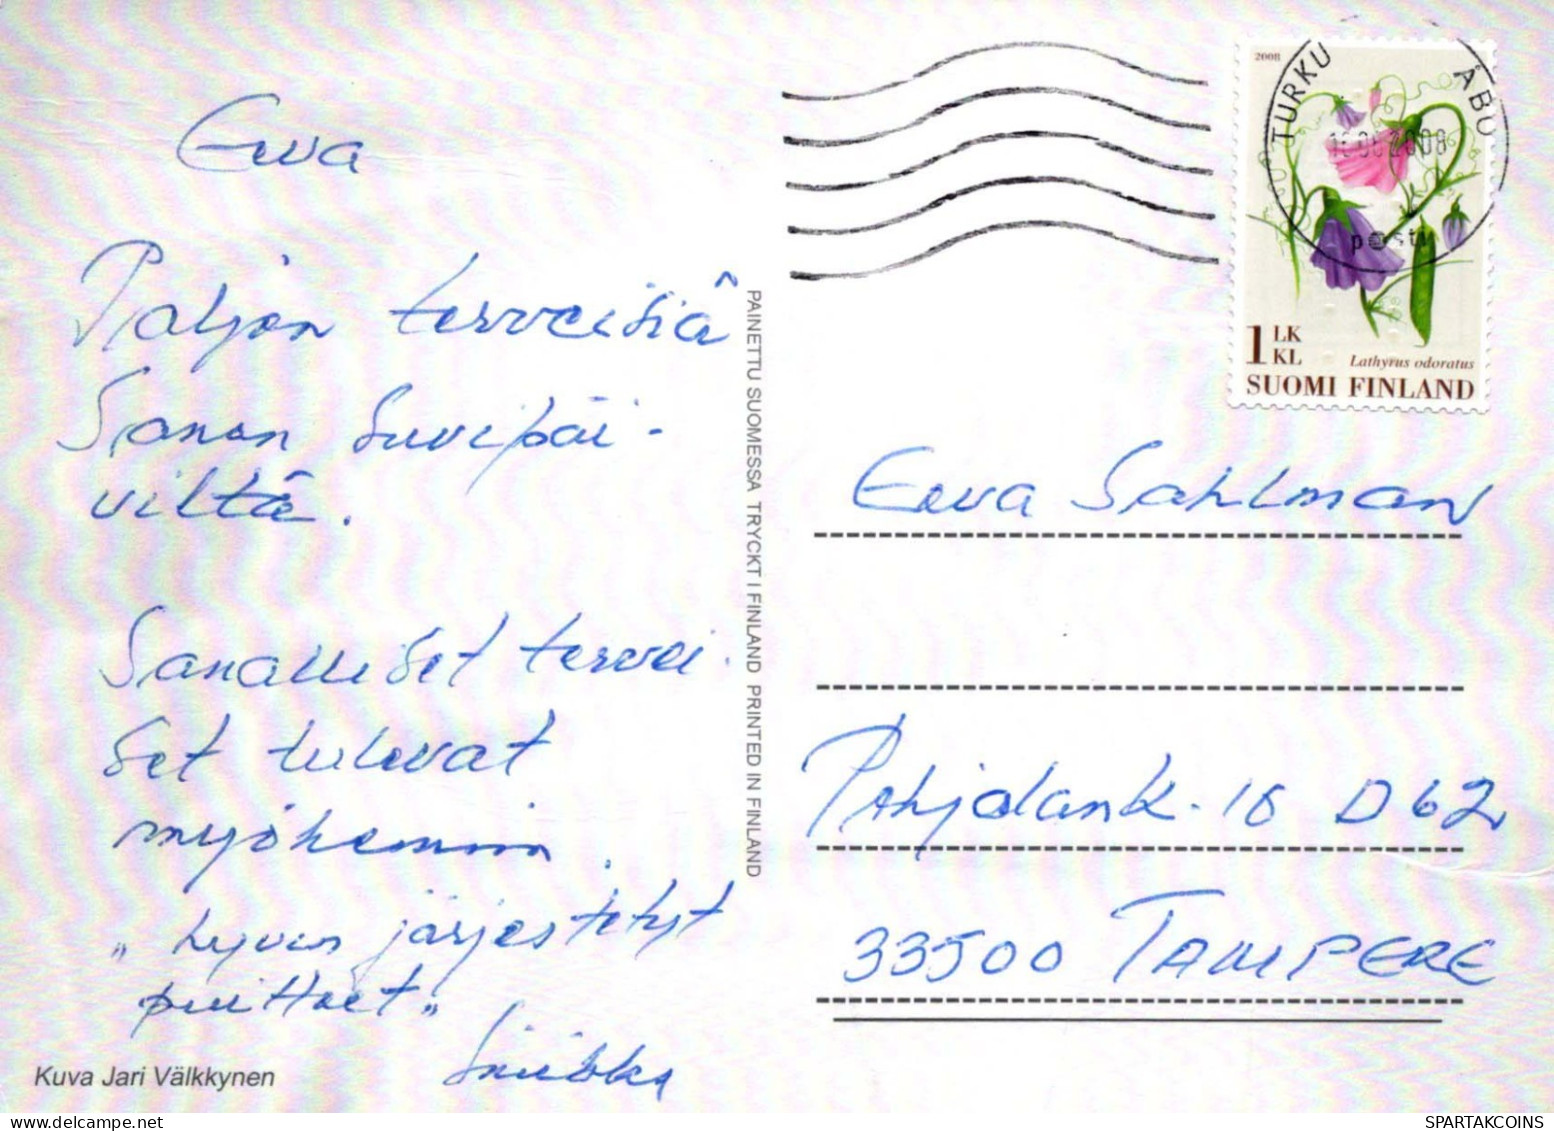 Eeva
Paljon terveisiä
Sanan Suvipäi-
viltä.
Sanalliset tervei-
set tulevat
myöhemmin.
„ hyvin järjestetyt
puitteet„
Kuva Jari Välkkynen
PAINETTU SUOMESSA TRYCKT I FINLAND PRINTED IN FINLAND
TURKU ÅBO
2008
posti
1 LK
KL
Lathyrus odoratus
SUOMI FINLAND
Eeva Sahlman
Pohjolank. 18 D 62
33500 TAMPERE
SPARTAKCOINS